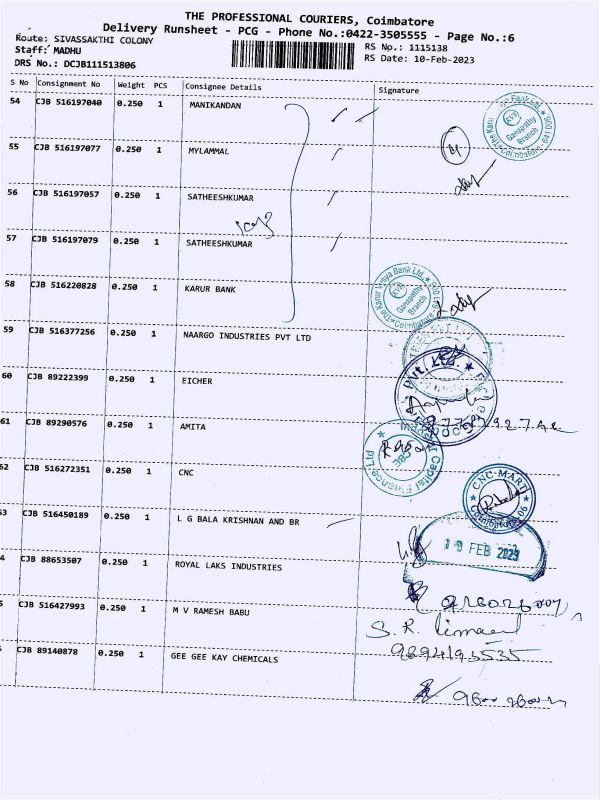 THE PROFESSIONAL COURIERS, Coimbatore
Delivery Runsheet - PCG - Phone No.:0422-3505555 - Page No.:6
Route: SIVASSAKTHI COLONY
RS No.: 1115138
Staff: MADHU
RS Date: 10-Feb-2023
DRS No.: DCJB111513806
S No Consignment No Weight PCS Consignee Details Signature
54 CJB 516197040 0.250 1 MANIKANDAN
55 CJB 516197077 0.250 1 MYLAMMAL
56 CJB 516197057 0.250 1 SATHEESHKUMAR
57 CJB 516197079 0.250 1 SATHEESHKUMAR
58 CJB 516220828 0.250 1 KARUR BANK
The Karur Vysya Bank Ltd.
KVB
Ganapathy
Branch
59 CJB 516377256 0.250 1 NAARGO INDUSTRIES PVT LTD
60 CJB 89222399 0.250 1 EICHER
61 CJB 89290576 0.250 1 AMITA
CBE
Capital Finance Ltd
62 CJB 516272351 0.250 1 CNC
CNC-MART
Coimbatore
63 CJB 516450189 0.250 1 L G BALA KRISHNAN AND BR
FEB 2023
4 CJB 88653507 0.250 1 ROYAL LAKS INDUSTRIES
5 CJB 516427993 0.250 1 M V RAMESH BABU
S. R.
9894193535
CJB 89140878 0.250 1 GEE GEE KAY CHEMICALS